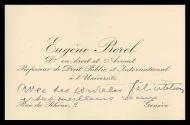 Eugène Borel
Dr en droit et Avocat
Professeur de Droit Public et International
à l'Université
Avec ses cordiales félicitations
et ses meilleurs vœux
Rue du Rhône, 2. Genève